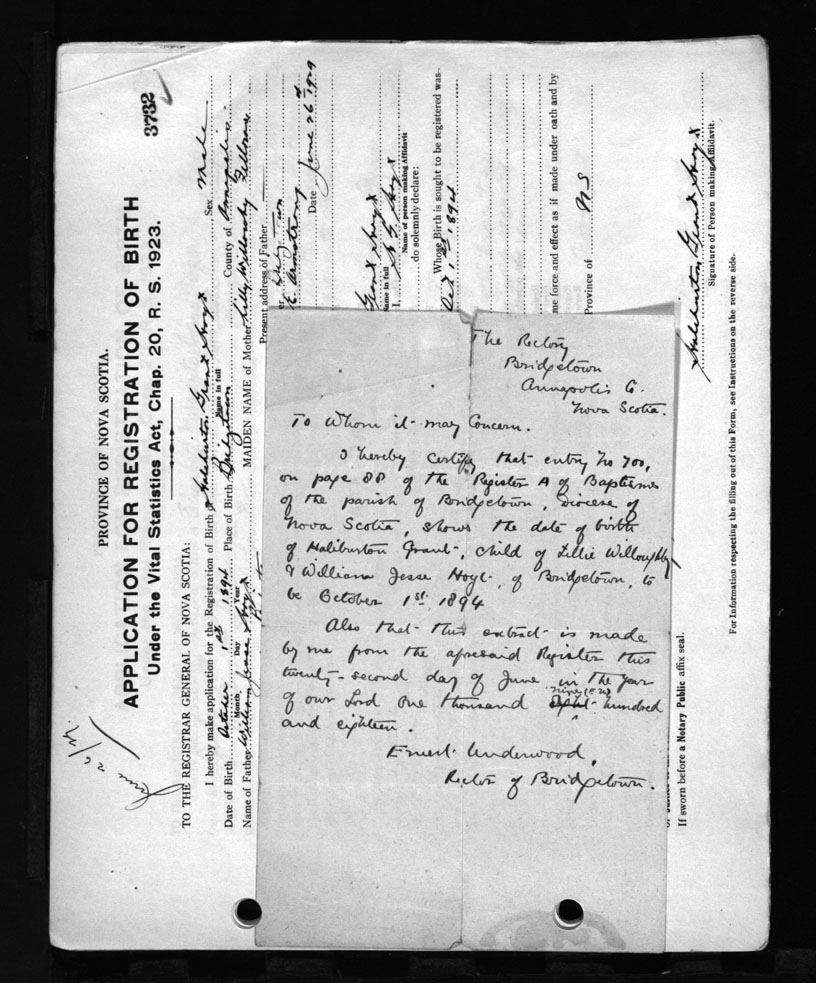 PROVINCE OF NOVA SCOTIA.
APPLICATION FOR REGISTRATION OF BIRTH
3732
Under the Vital Statistics Act, Chap. 20, R. S. 1923.
TO THE REGISTRAR GENERAL OF NOVA SCOTIA:
I hereby make application for the Registration of Birth of Haliburton Grant Hoyt Sex. Male
Name in full
Date of Birth October 1st 1894 Place of Birth County of Annapolis
Month Day Year
Name of Father William Jesse Hoyt MAIDEN NAME of Mother Lilly Willoughby
Present address of Father
E. Armstrong
Date June 26th 1929
Grant Hoyt
Name in full
I, H G Hoyt
Name of person making Affidavit
do solemnly declare:
Whose Birth is sought to be registered was
Oct 1st 1894
me force and effect as if made under oath and by
Province of N S
Haliburton Grant Hoyt
Signature of Person making Affidavit.
If sworn before a Notary Public affix seal.
For Information respecting the filling out of this Form, see Instructions on the reverse side.
The Rectory
Bridgetown
Annapolis Co.
Nova Scotia.
To Whom it may Concern.
I hereby certify that entry No 700,
on page 88 of the Register A of Baptisms
of the parish of Bridgetown, Diocese of
Nova Scotia, shows the date of birth
of Haliburton Grant, child of Lillie Willoughby
& William Jesse Hoyt, of Bridgetown, to
be October 1st 1894
Also that this extract is made
by me from the aforesaid Register this
twenty-second day of June in the year
of our Lord one thousand nine (E.U.) hundred
and eighteen.
Ernest Underwood,
Rector of Bridgetown.